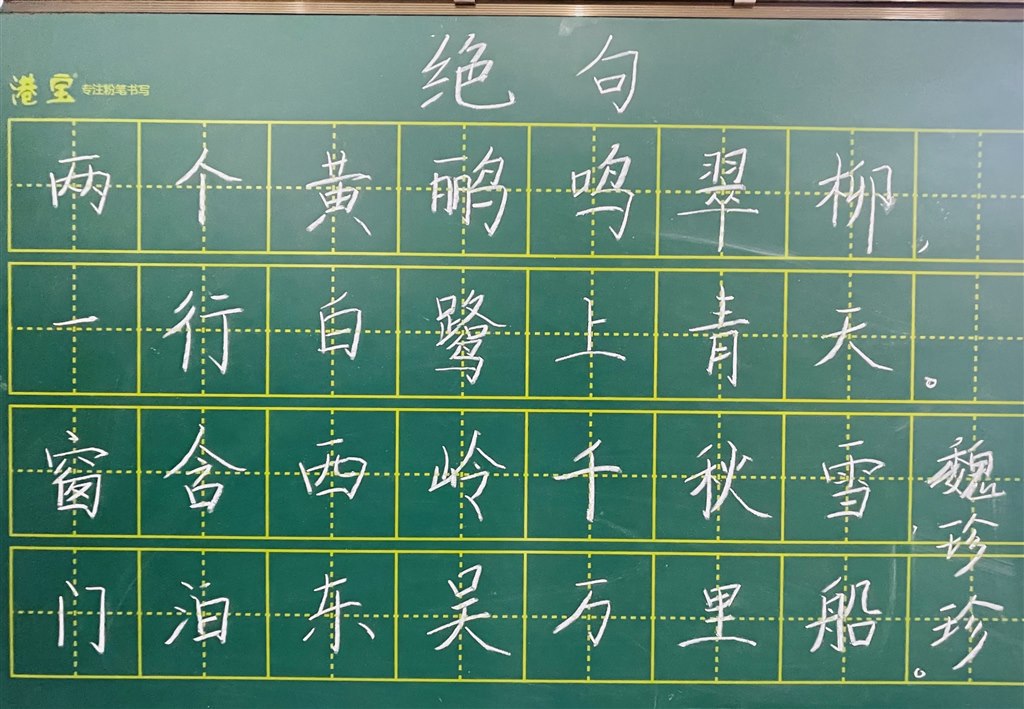 绝句
港宝 专注粉笔书写
两个黄鹂鸣翠柳,
一行白鹭上青天。
窗含西岭千秋雪,
门泊东吴万里船。
魏珍珍